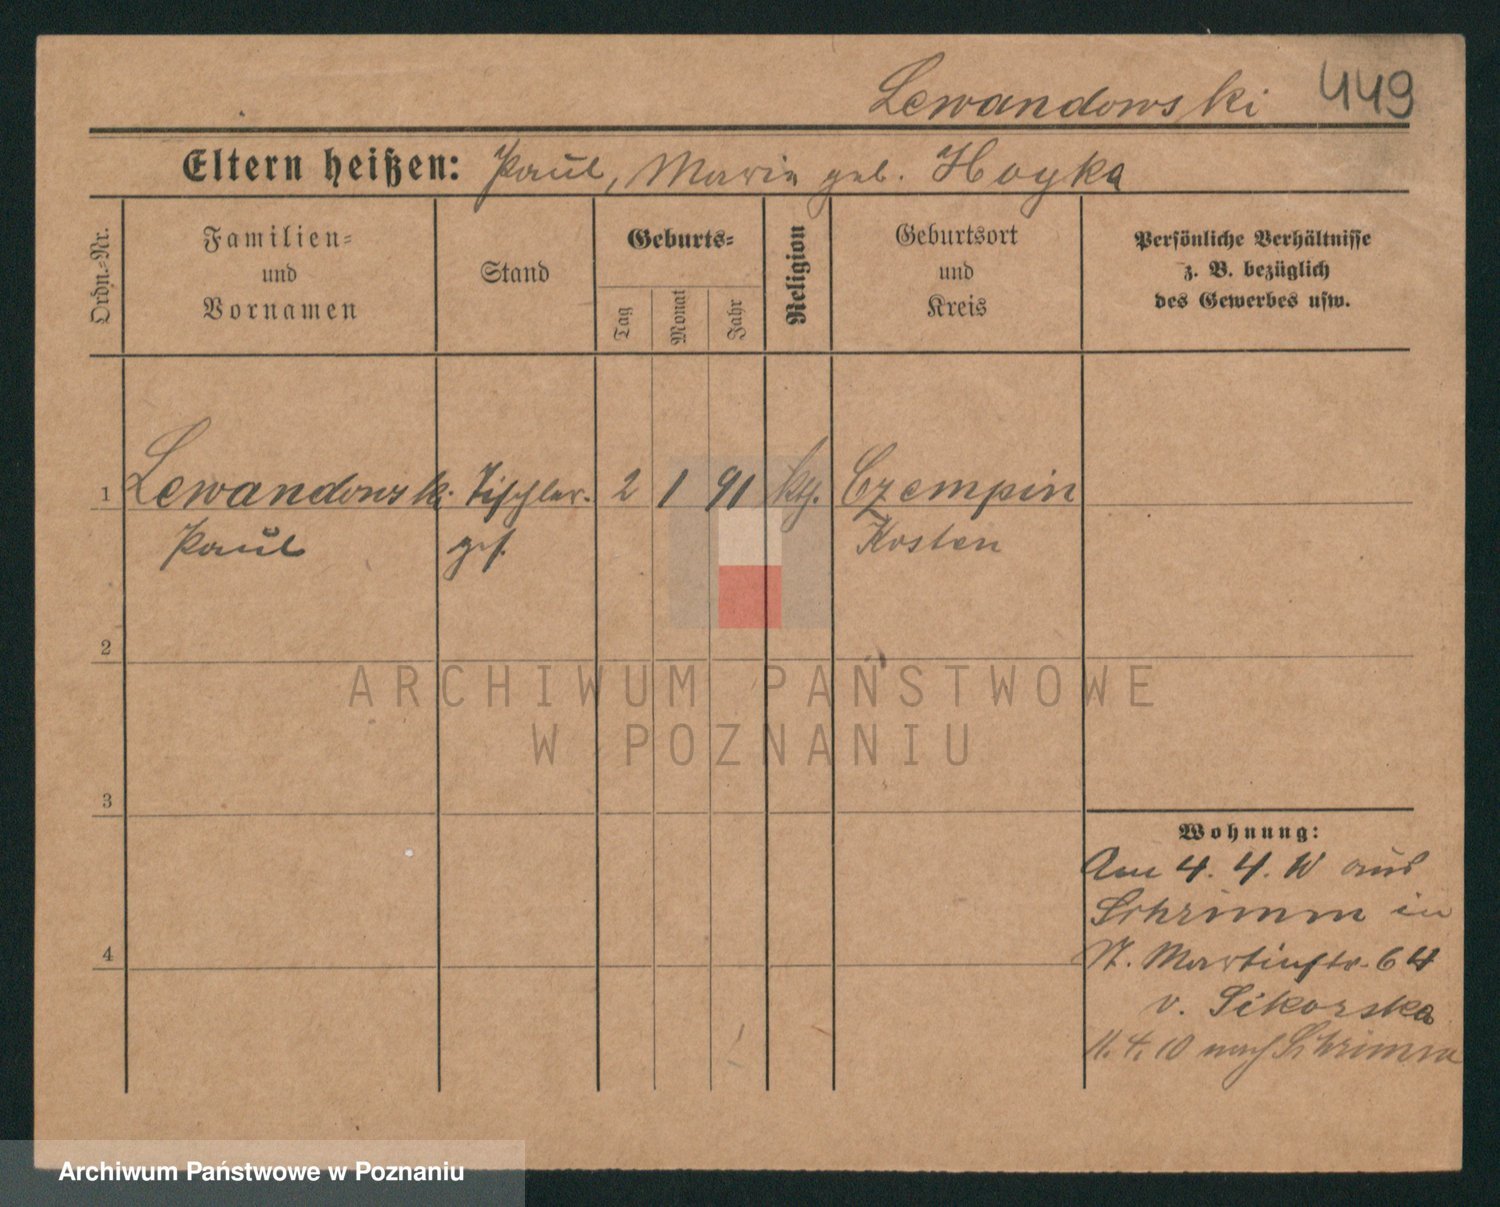 Lewandowski 449
Eltern heißen: Paul, Maria geb. Hoyka
Ordn.-Nr.
Familien-
und
Vornamen
Stand
Geburts-
Tag
Monat
Jahr
Religion
Geburtsort
und
Kreis
Persönliche Verhältnisse
z. B. bezüglich
des Gewerbes usw.
1 Lewandowski Tischler- 2 1 91 kth. Czempin
Paul ges. Kosten
2
3
4
Wohnung:
Am 4. 4. 10 aus
Schrimm in
St. Martinstr. 64
v. Sikorska
11. 4. 10 nach Schrimm
ARCHIWUM PAŃSTWOWE
W POZNANIU
Archiwum Państwowe w Poznaniu